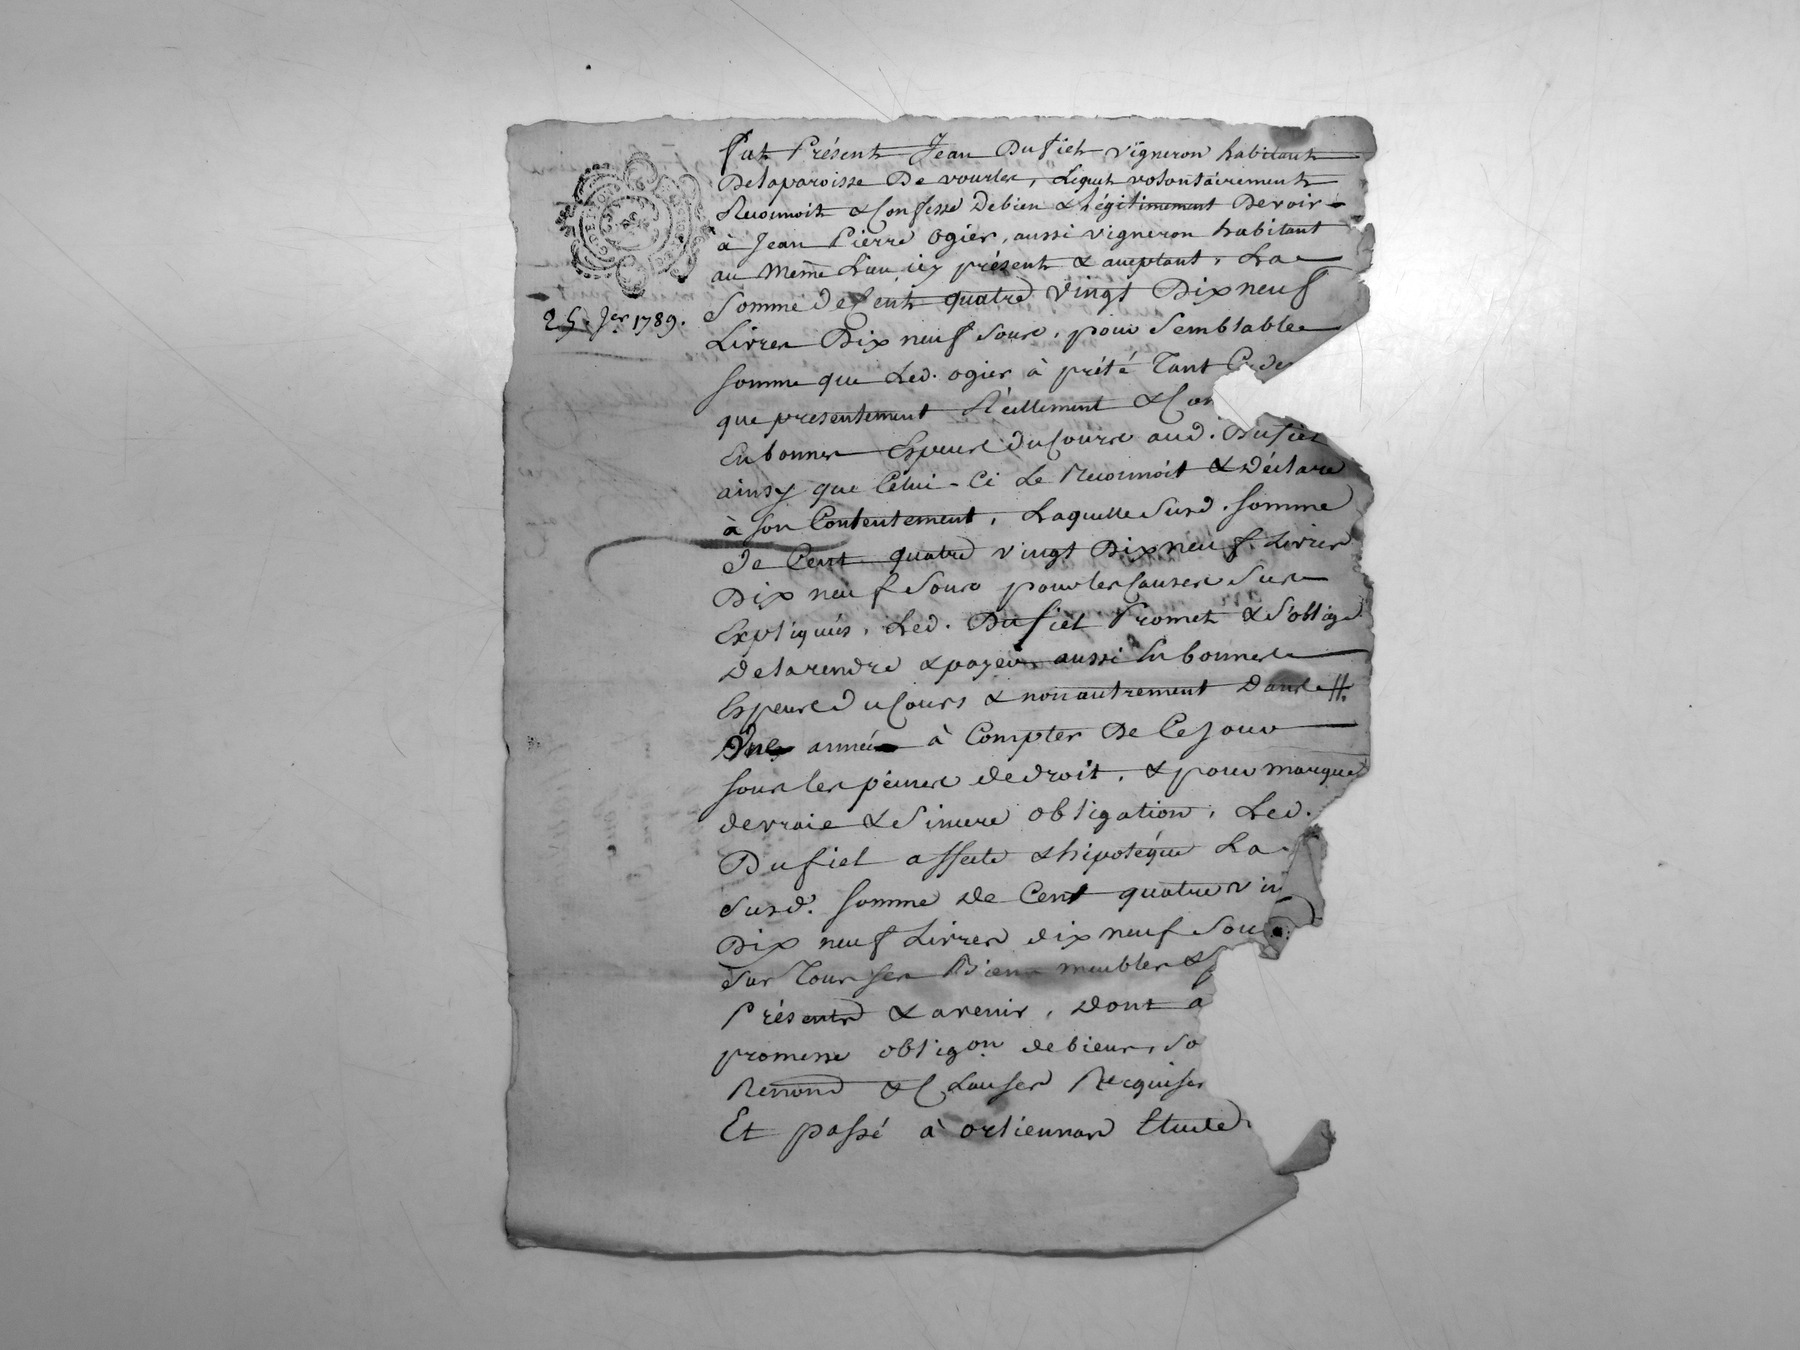 fut Présent Jean Dufiet vigneron habitant
Delaparoisse De vourles, Lequel volontairement
Reconnoit & Confesse Debien & légitimement Devoir
à Jean Pierre ogier, aussi vigneron habitant
au meme Lieu icy présent & acceptant, La
Somme de Cent quatre vingt Dix neuf
25 Jer 1789.
Livres Dix neuf Sous, pour Semblable
somme que Led. ogier à prété Tant Cyde
que presentement Réellement & Con
En bonnes Especes du Cours aud. Dufiet
ainsy que Celui-Ci Le Reconnoit & Déclare
à son Contentement, Laquelle Susd. somme
de Cent quatre vingt Dix neuf Livres
Dix neuf Sous pour les Causes Sus
Expliqués, Led. Dufiet Promet & S'oblige
De la rendre & payer aussi En bonnes
Especes du Cours & non autrement Dans #
une année à Compter De Ce Jour
sous les peines de droit, & pour marque
de vraie & Sincere obligation, Led.
Dufiet affecte & hipotéque La
Susd. somme de Cent quatre vin
Dix neuf Livres dix neuf Sou
Sur Tous ses Biens meubles &
Présents & avenir, Dont a
promesse obligon de biens, So
Renond & Clauses Requises
Et passé à orlienas Etude